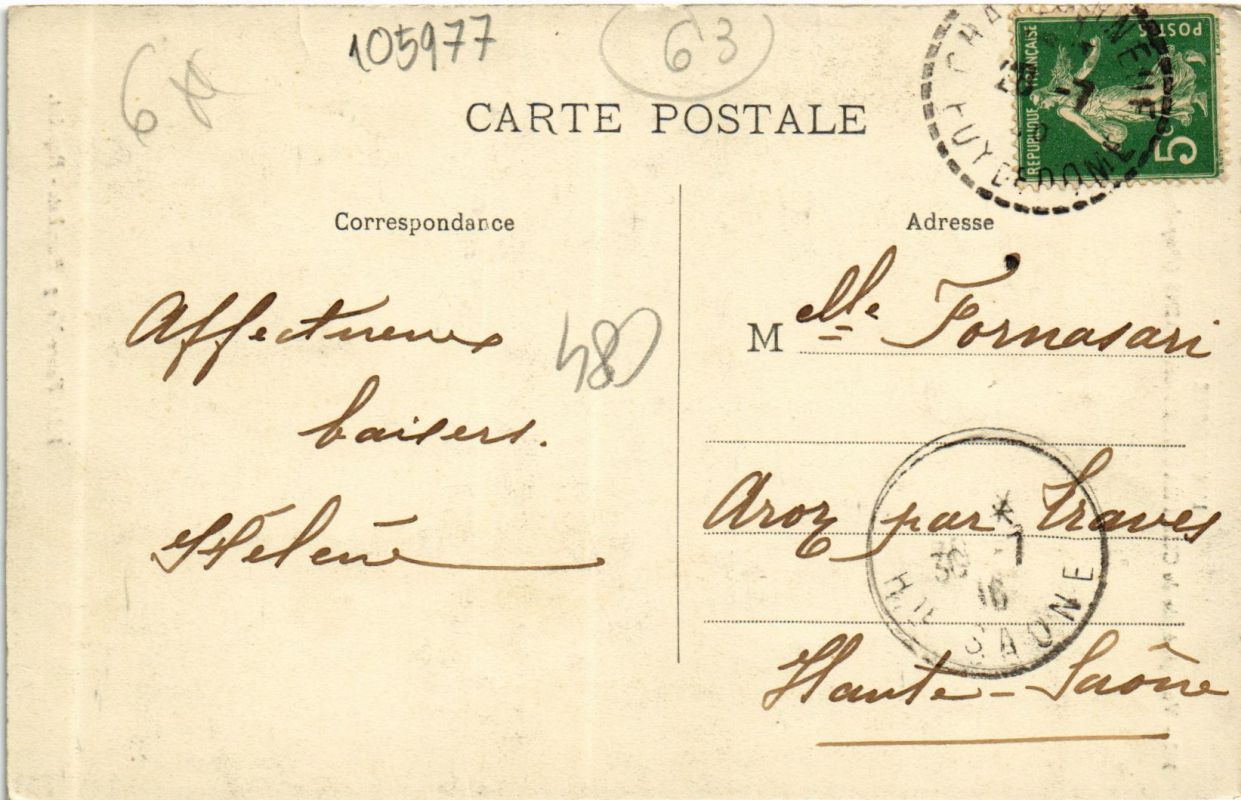 105977
63
6
CARTE POSTALE
RÉPUBLIQUE FRANÇAISE
POSTES
5c
PUY DE DÔME
Correspondance
Adresse
Affectueux
baisers.
Hélène
480
Melle Fornasari
Aroz par Traves
Haute-Saône
30 -7
16
Hte SAONE